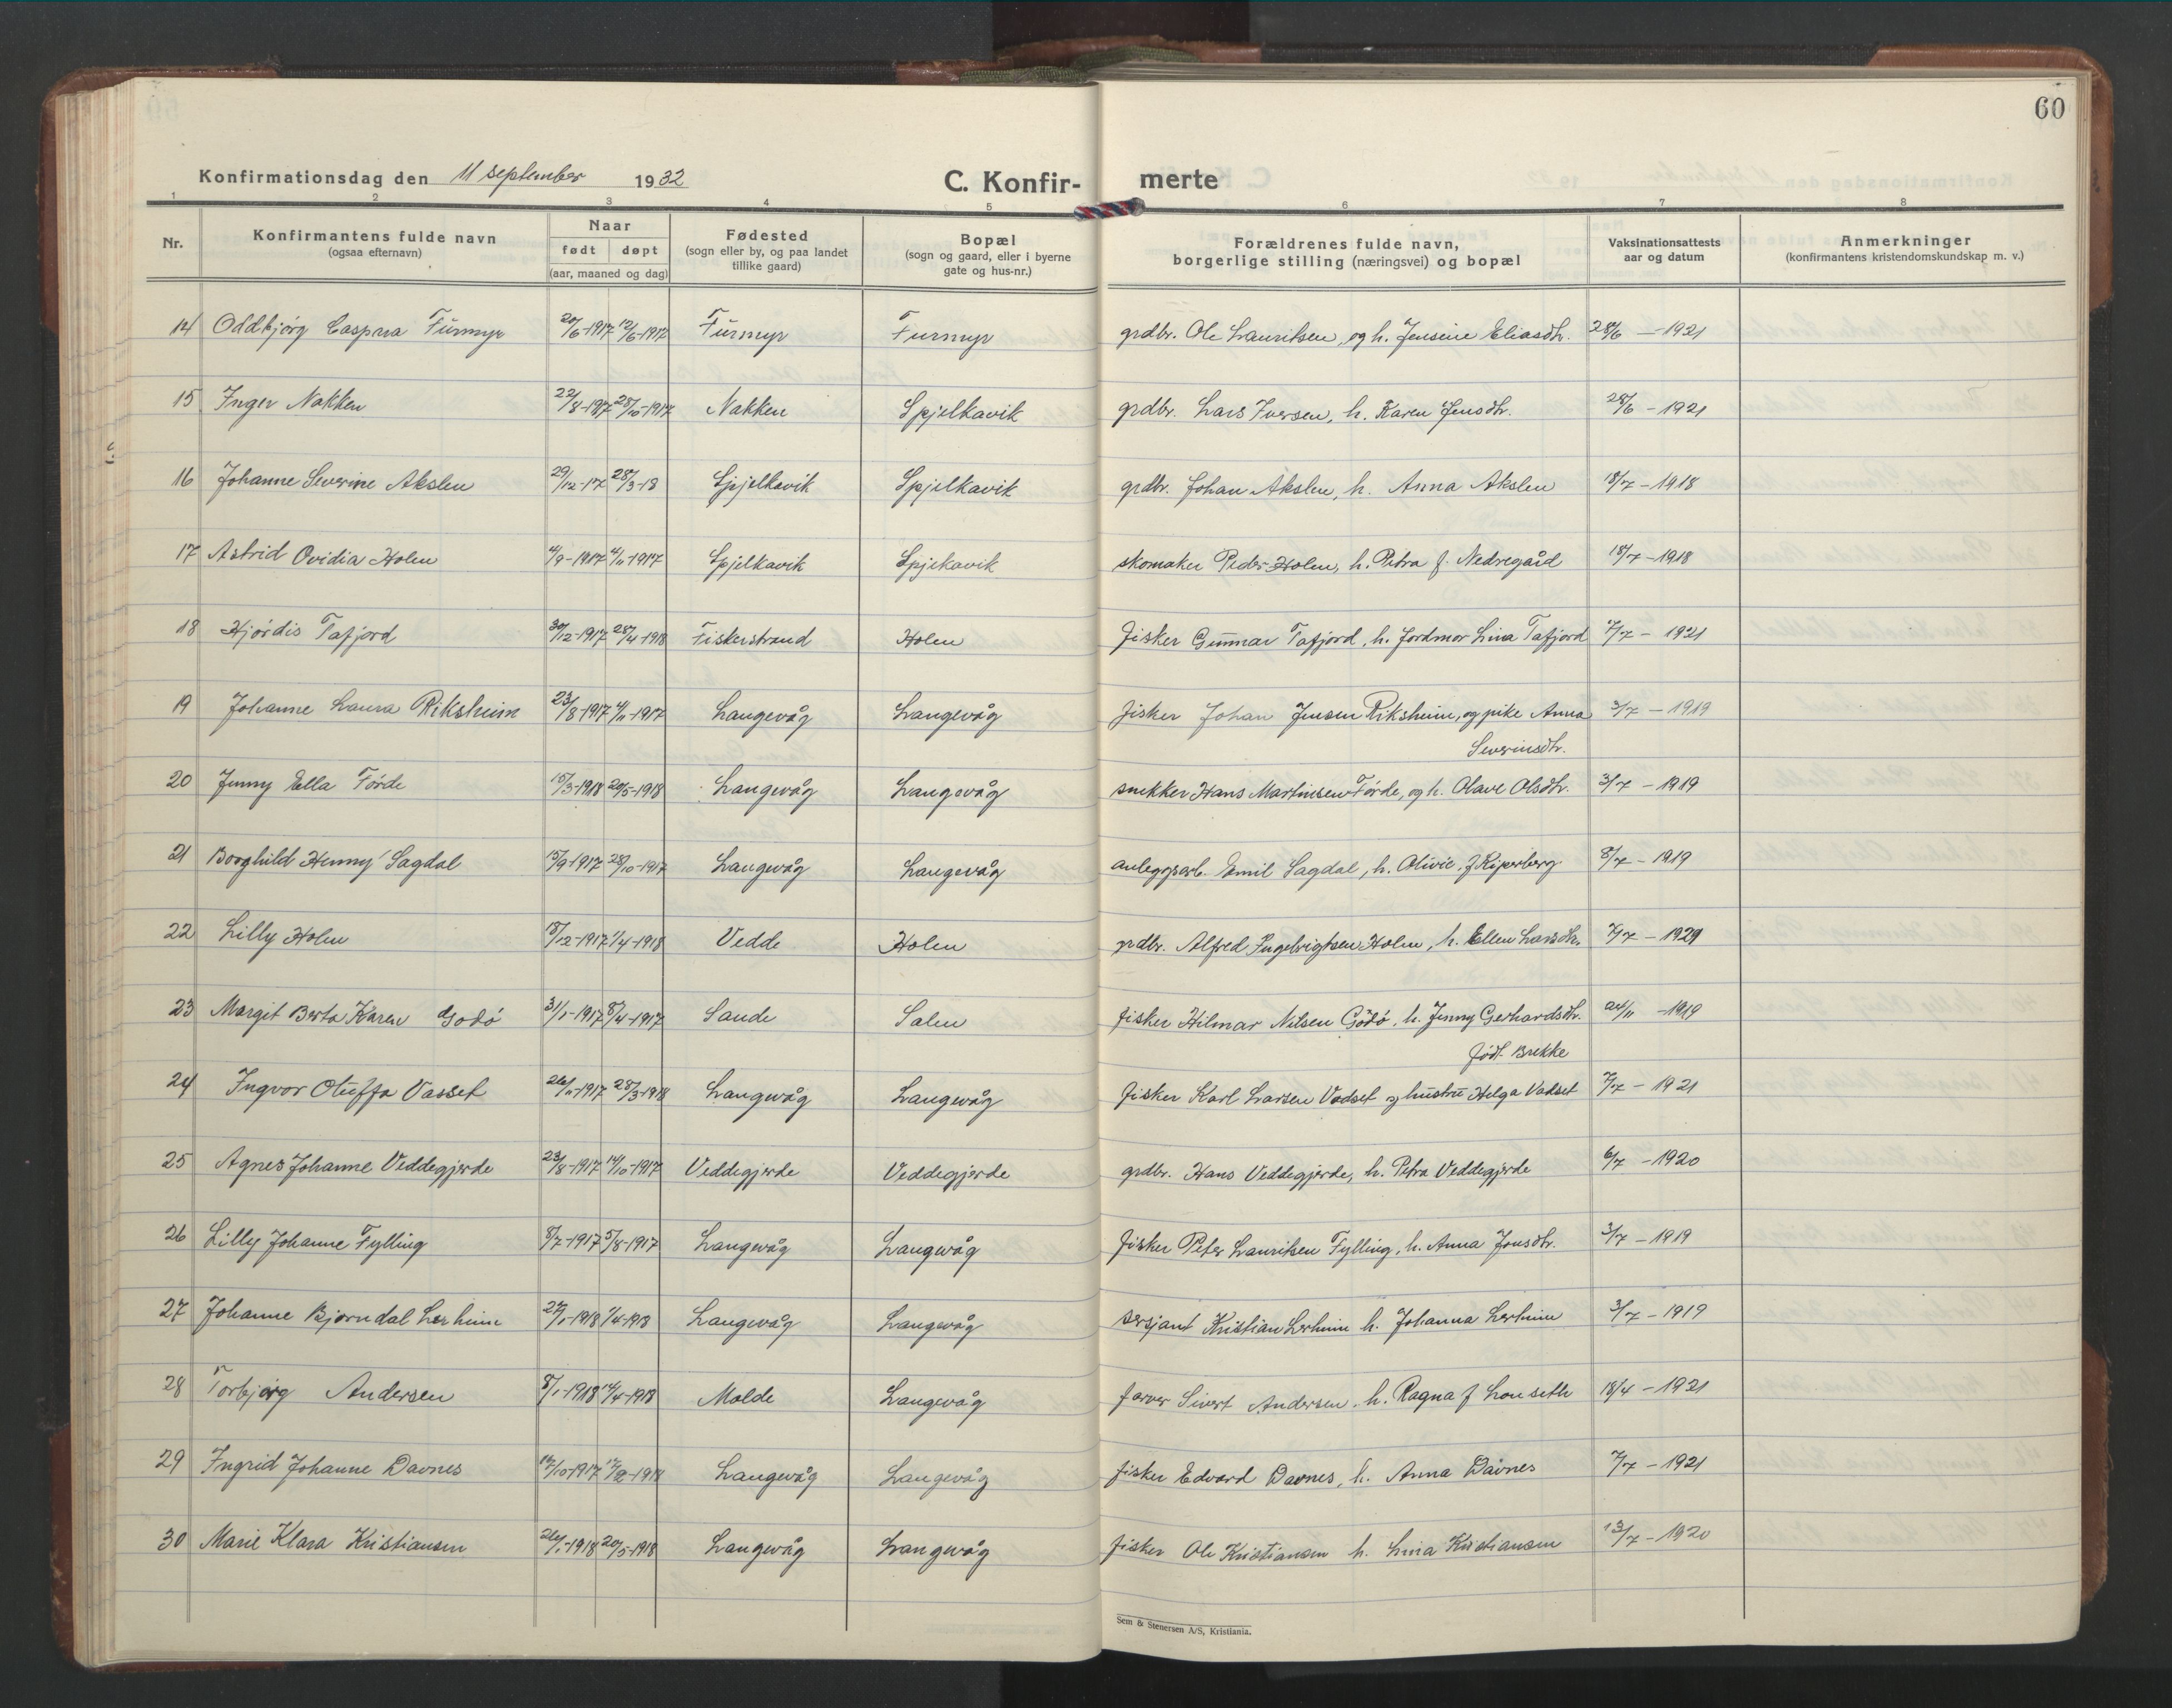 60
Konfirmationsdag den 11 september 1932
C. Konfir-
merte
1 2 3 4 5 6 7 8
Nr.
Konfirmantens fulde navn
(ogsaa efternavn)
Naar
født døpt
(aar, maaned og dag)
Fødested
(sogn eller by, og paa landet
tillike gaard)
Bopæl
(sogn og gaard, eller i byerne
gate og hus-nr.)
Forældrenes fulde navn,
borgerlige stilling (næringsvei) og bopæl
Vaksinationsattests
aar og datum
Anmerkninger
(konfirmantens kristendomskundskap m. v.)
14 Oddbjørg Caspara Furmyr 20/6-1917 12/6-1917 Furmyr Furmyr grdbr. Ole Lauritsen, og h. Jensine Eliasdtr. 28/6 - 1921
15 Inger Nakken 22/8-1917 28/10-1917 Nakken Spjelkavik grdbr. Lars Iversen, h. Karen Jensdtr. 28/6 - 1921
16 Johanne Severine Akslen 29/12-17 28/3-18 Spjelkavik Spjelkavik grdbr. Johan Akslen, h. Anna Akslen 18/7 - 1918
17 Astrid Ovidia Holen 4/9-1917 4/11-1917 Spjelkavik Spjekavik skomaker Peder Holen, h. Petra f. Nedregård 18/7 - 1918
18 Hjørdis Tafjord 30/12-1917 28/4-1918 Fiskerstrand Holen fisker Gunnar Tafjord, h. jordmor Lina Tafjord 7/7 - 1921
19 Johanne Laura Riksheim 23/8-1917 4/11-1917 Langevåg Langevåg fisker Johan Jensen Riksheim, og pike Anna 3/7 - 1919
Severinsdtr.
20 Jenny Ella Førde 15/3-1918 20/5-1918 Langevåg Langevåg snekker Hans Martinsen Førde, og h. Olave Olsdtr. 3/7 - 1919
21 Borghild Henny Sagdal 15/9-1917 28/10-1917 Langevåg Langevåg anleggsarb. Emil Sagdal, h. Olivie, f. Kiperberg 8/7 - 1919
22 Lilly Holen 18/12-1917 1/4-1918 Vedde Holen grdbr. Alfred Ingebrigtsen Holen, h. Ellen Larsdtr. 7/7 - 1929
23 Margit Berta Karen Godø 31/1-1917 8/4-1917 Sande Salen fisker Hilmar Nilsen Godø, h. Jenny Gerhardsdtr. 24/11 - 1919
født Brekke
24 Ingvor Oluffa Vasset 26/11-1917 28/3-1918 Langevåg Langevåg fisker Karl Larsen Vadset og hustru Helga Vadset 7/7 - 1921
25 Agnes Johanne Veddegjerde 23/8-1917 14/10-1917 Veddegjerde Veddegjerde grdbr. Hans Veddegjerde, h. Petra Veddegjerde 6/7 - 1920
26 Lilly Johanne Fylling 8/7-1917 5/8-1917 Langevåg Langevåg fisker Peter Lauritsen Fylling, h. Anna Jonsdtr. 3/7 - 1919
27 Johanne Bjørndal Lerheim 27/1-1918 1/4-1918 Langevåg Langevåg sersjant Kristian Lerheim h. Johanna Lerheim 3/7 - 1919
28 Torbjørg Andersen 8/1-1918 14/4-1918 Molde Langevåg farver Sivert Andersen, h. Ragna f. Lonseth 18/4 - 1921
29 Ingrid Johanne Davnes 17/10-1917 17/2-1918 Langevåg Langevåg fisker Edvard Davnes, h. Anna Davnes 7/7 - 1921
30 Marie Klara Kristiansen 26/1-1918 20/5-1918 Langevåg Langevåg fisker Ole Kristiansen h. Lina Kristiansen 13/7 - 1920
Sem & Stenersen A/S, Kristiania.